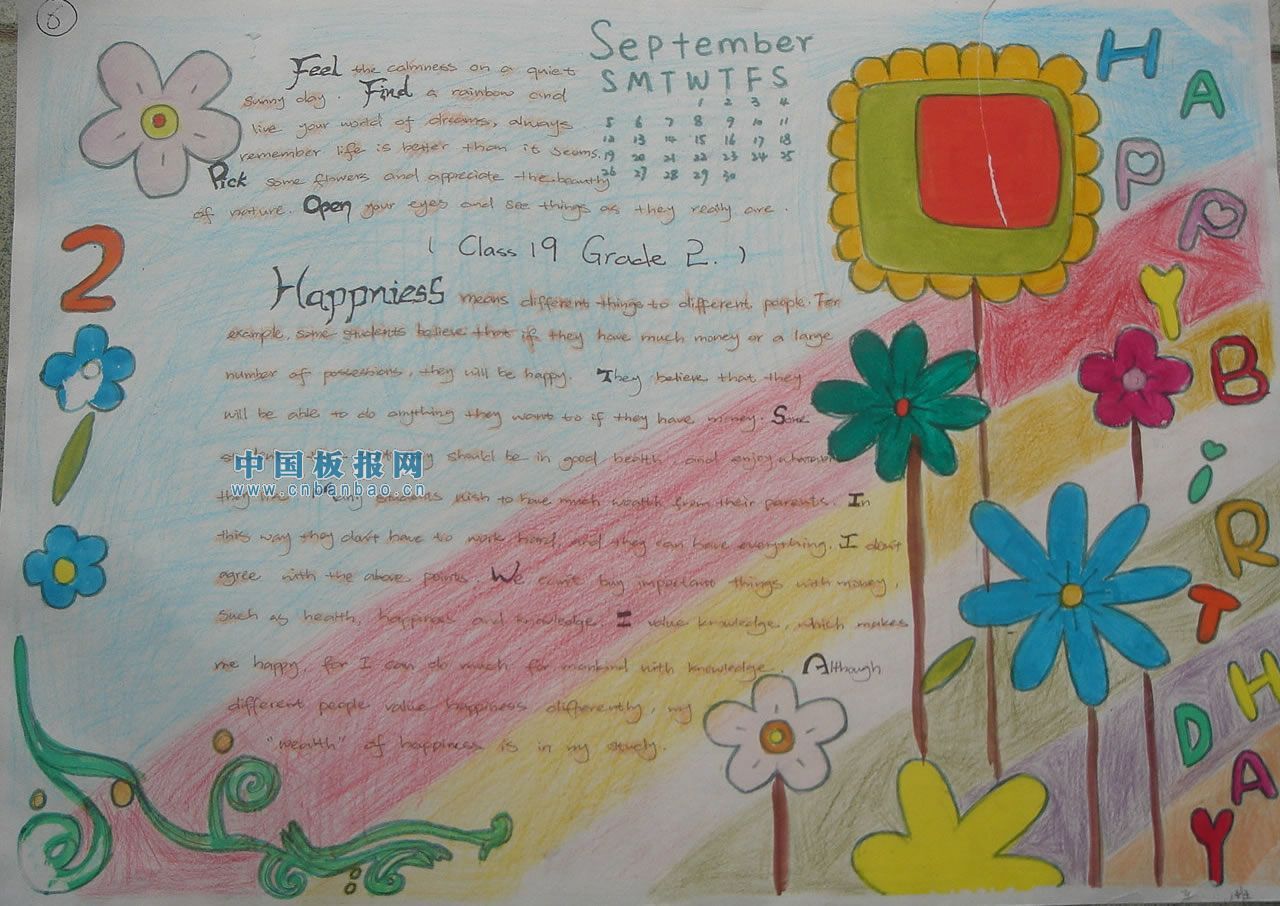 6
September
S M T W T F S
1 2 3 4
5 6 7 8 9 10 11
12 13 14 15 16 17 18
19 20 21 22 23 24 25
26 27 28 29 30
Feel the calmness on a quiet
sunny day. Find a rainbow and
live your world of dreams, always
remember life is better than it seems.
Pick some flowers and appreciate the beauthy
of nature. Open your eyes and see things as they really are.
( Class 19 Grade 2. )
Happniess means different things to different people. For
example, some students believe that if they have much money or a large
number of possessions, they will be happy. They believe that they
will be able to do anything they want to if they have money. Some
should be in good health, and enjoy
students wish to have much wealth from their parents. In
this way they don't have to work hard, and they can have everything. I don't
agree with the above points. We can't buy important things with money,
such as health, happiness and knowledge. I value knowledge, which makes
me happy, for I can do much for mankind with knowledge. Although
different people value happiness differently, my
"wealth" of happiness is in my study.
2
HAPPY BiRTHDAY
中国板报网
www.cnbanbao.cn